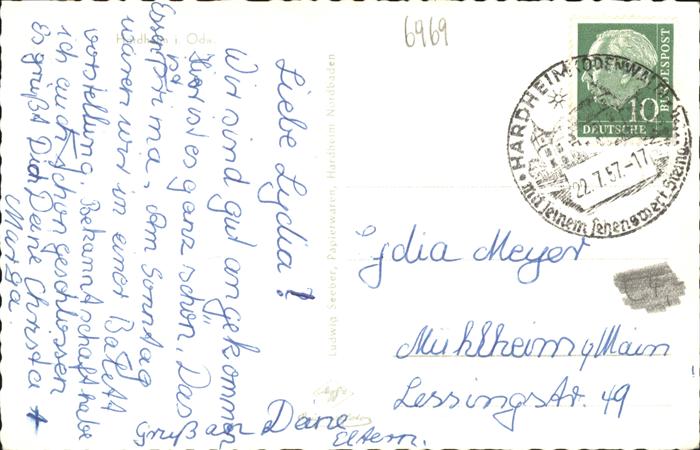 6969
Hardheim i. Odw.
Liebe Lydia!
Wir sind gut angekommen
Hier ist es ganz schön. Das
Essen ist prima, vom Sonntag
waren wir in einer Balett
vorstellung. Bekanntschaft habe
ich auch schon geschlossen
Es grüßt Dich Deine Christa +
Marga.
Gruß an Deine
Eltern.
Ludwig Seeber, Papierwaren, Hardheim Nordbaden
DEUTSCHE
BUNDESPOST
10
HARDHEIM (ODENWALD)
22.7.57.-17
mit seinem sehenswert.
Lydia Meyer
Mühlheim/Main
Lessingstr. 49